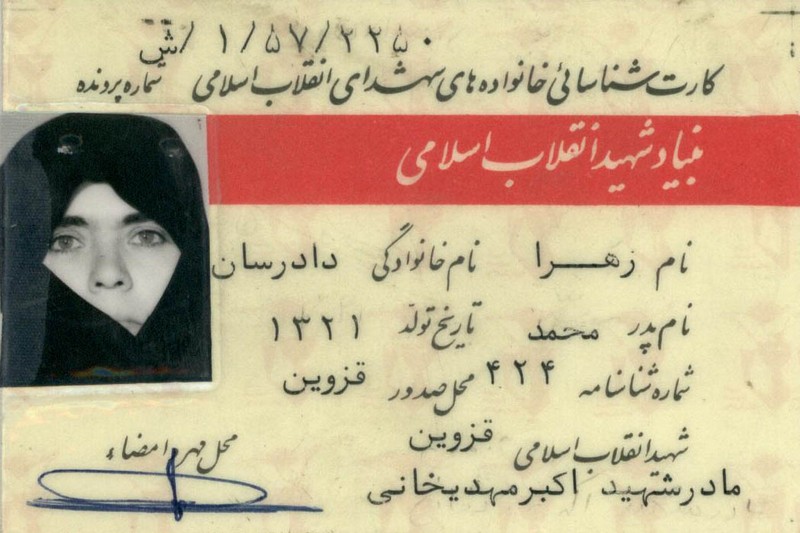 ش/ ۱/۵۷/۲۲۵۰
کارت شناسائی خانواده های شهدای انقلاب اسلامی شماره پرونده
بنیاد شهید انقلاب اسلامی
نام زهرا نام خانوادگی دادرسان
نام پدر محمد تاریخ تولد ۱۳۲۱
شماره شناسنامه ۴۲۴ محل صدور قزوین
شهید انقلاب اسلامی قزوین محل مهر و امضاء
مادرشهید اکبرمهدیخانی